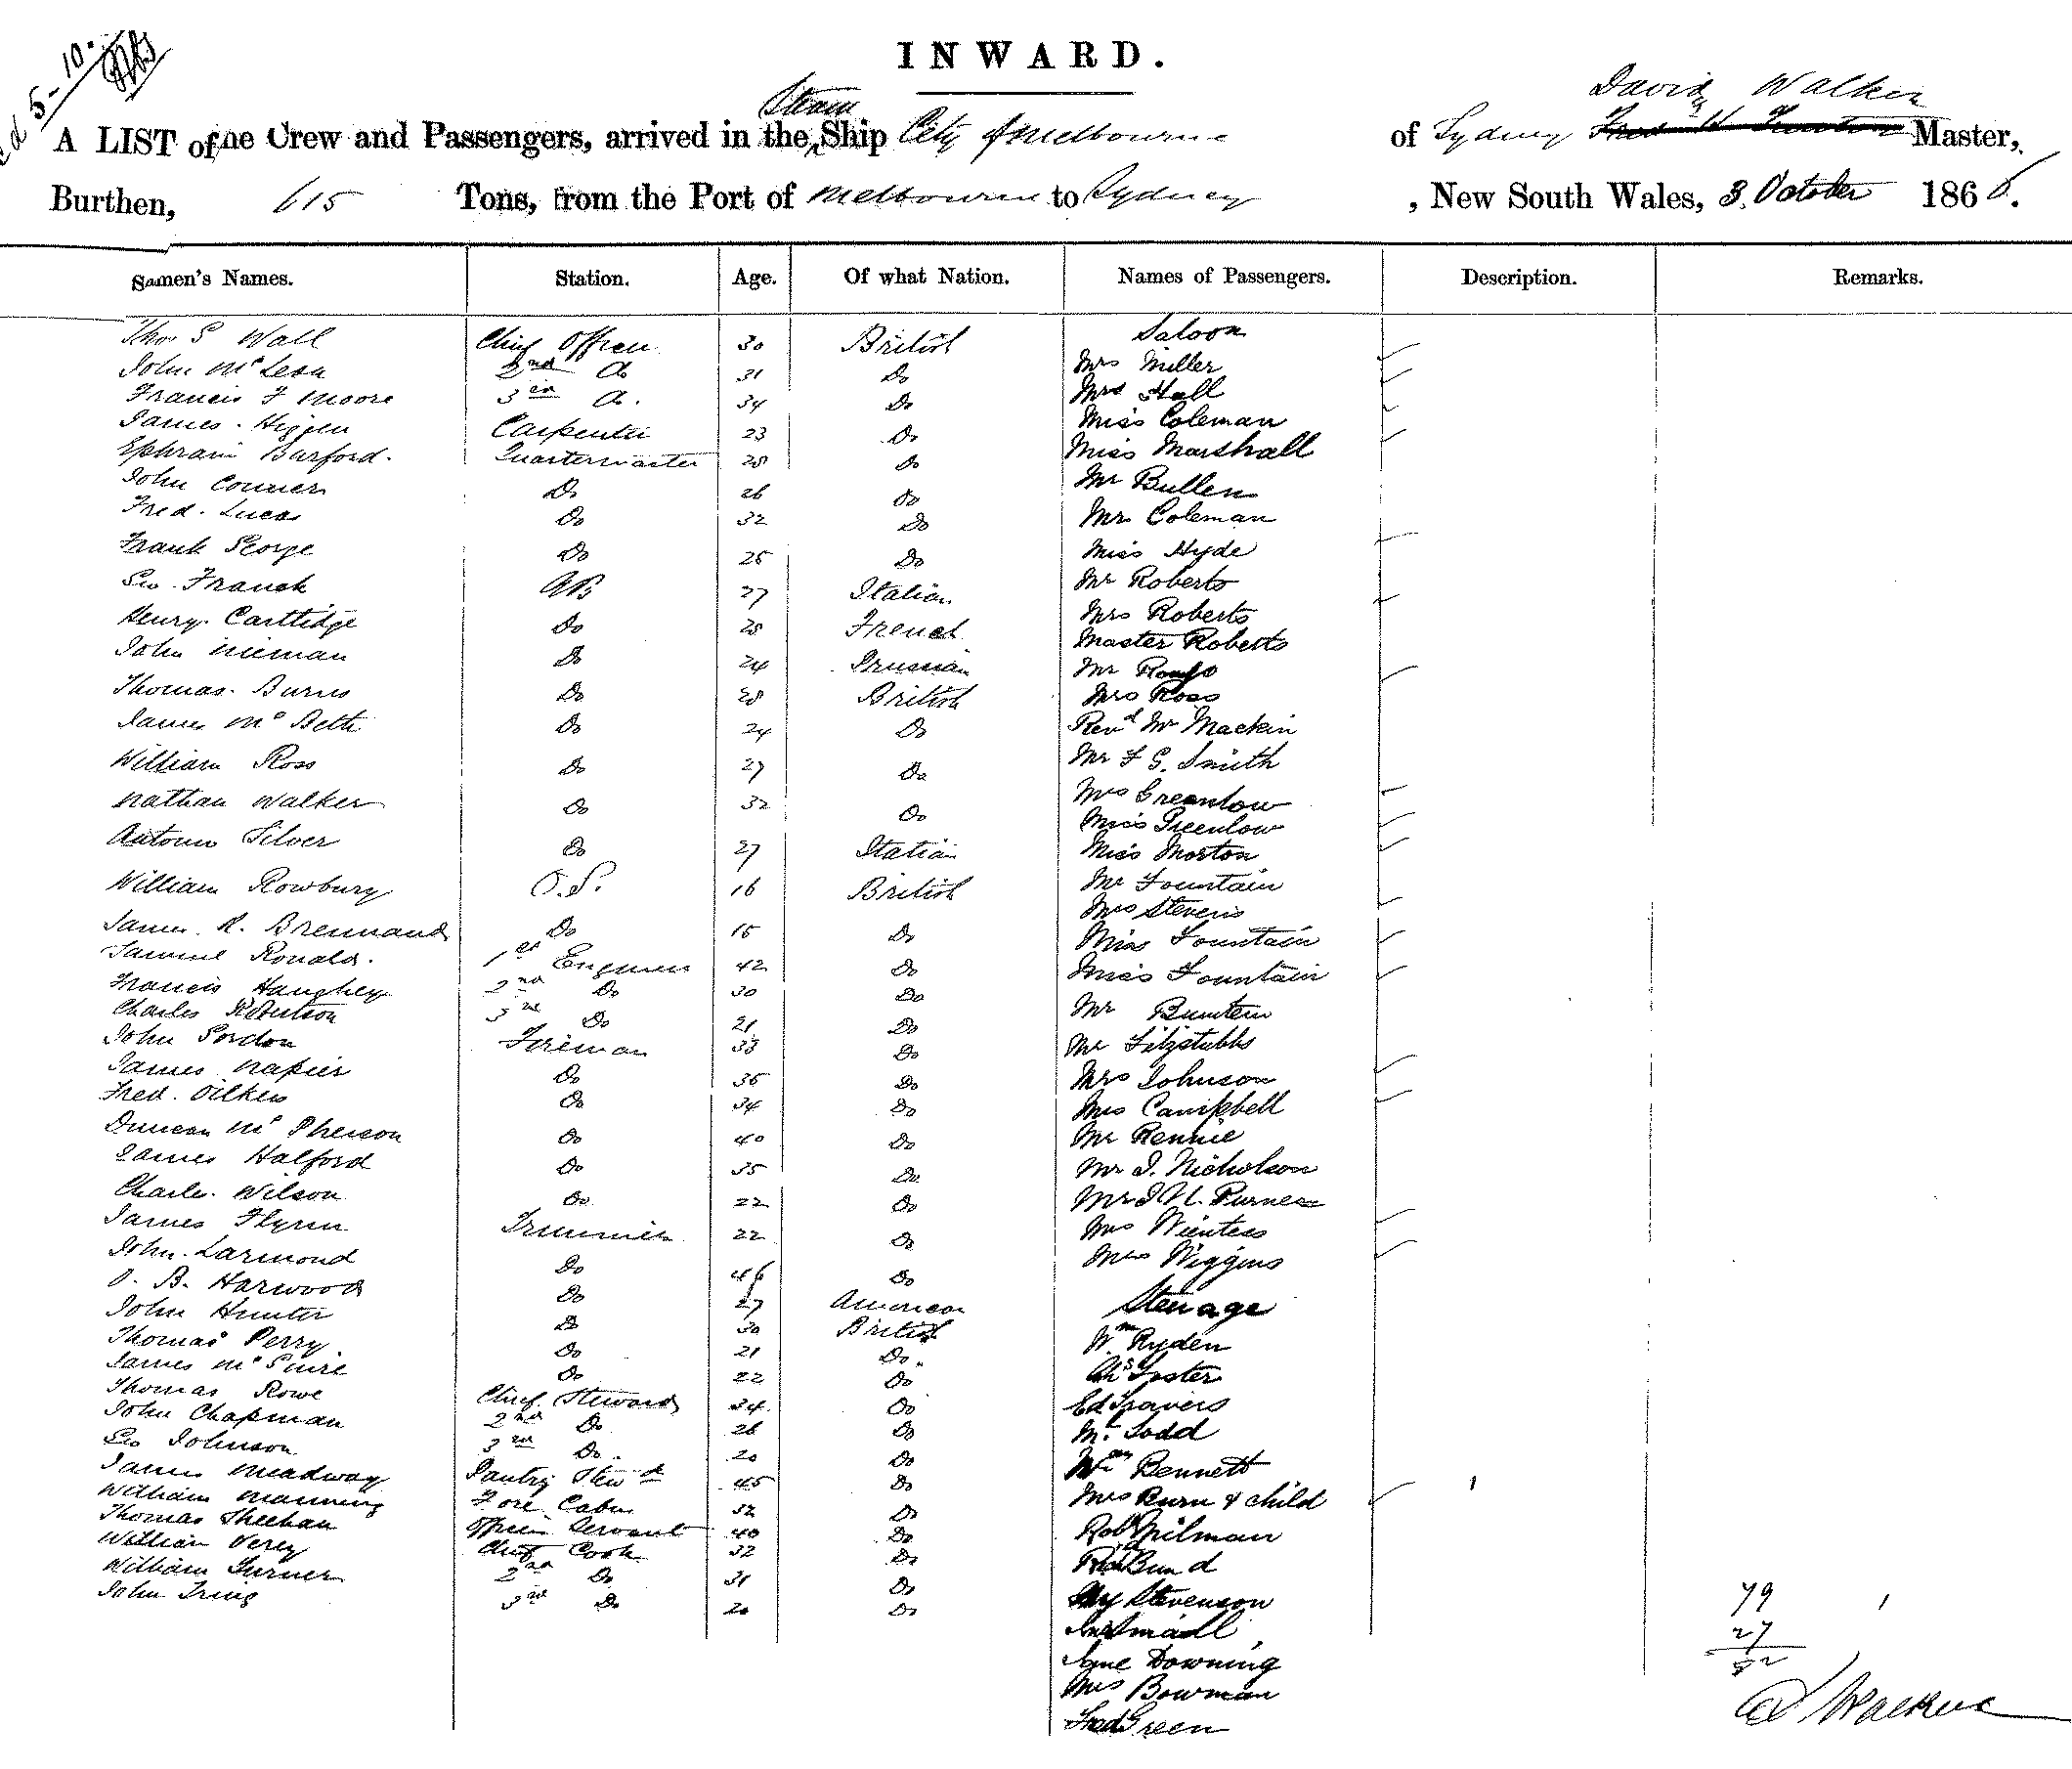 5-10-
INWARD.
Steam David Walker
A LIST of ne Crew and Passengers, arrived in the Ship City of Melbourne of Sydney Master,
Burthen, 615 Tons, from the Port of Melbourne to Sydney , New South Wales, 3. October 1866.
Samen's Names. Station. Age. Of what Nation. Names of Passengers. Description. Remarks.
Saloon
Thos S Wall Chief Officer 30 British Mrs Miller
John McLean 2nd Do 31 Do Mrs Hall
Francis F Moore 3rd Do. 34 Do Miss Coleman
James Carpenter 23 Do Miss Marshall
Ephraim Burford. Quartermaster 28 Do Mr Bullen
John Do 26 Do Mr Coleman
Fred. Lucas Do 32 Do Miss Hyde
Frank George Do 25 Do Mr Roberts
Geo. Franck AB 27 Italian Mrs Roberts
Henry. Carttidge Do 28 French Master Roberts
John Nieman Do 24 Prussian Mr
Thomas. Burns Do 28 British Mrs Ross
James McBeth Do 24 Do Revd Mr Mackin
William Ross Do 27 Do Mr F G. Smith
Nathan Walker Do 32 Do Mrs Greenlow
Miss Greenlow
Antonio Silver Do 27 Italian Miss Morton
William Rowbury O.S. 16 British Mr Fountain
Mrs Stevens
James. R. Brennand Do 15 Do Miss Fountain
Samuel Ronald. 1st Engineer 42 Do Miss Fountain
Francis Haughey 2nd Do 30 Do Mr
Charles Robertson 3rd Do 21 Do Mr Fitzstubbs
John Gordon Fireman 33 Do Mrs Johnson
James Napier Do 35 Do Mrs Campbell
Fred. Oilkers Do 34 Do Mr Rennie
Duncan McPherson Do 40 Do Mr J. Nicholson
James Halford Do 35 Do Mr J H. Purves
Charles. Wilson Do 22 Do Mrs
James Flynn Trimmer 22 Do Mrs Wiggins
John. Larmond Do 46 Do Steerage
O. B. Harwood Do 27 American Wm Ryden
John Hunter Do 30 British Chs Foster
Thomas Perry Do 21 Do. Ed Travers
James McGuire Do 22 Do Mr Todd
Thomas Rowe Chief Steward 34 Do Wm Bennett
John Chapman 2nd Do 26 Do Mrs Burn & child
Geo Johnson 3rd Do 20 Do Robt Milman
James Meadway Pantry Stewd 45 Do Richd Bund
William Manning Fore Cabin 32 Do Hy Stevenson
Thomas Sheehan Officers Servant 40 Do Small
William Verey Chief Cook 32 Do Jane Downing
William Turner 2nd Do 31 Do Mrs Bowman
John Tring 3rd Do 20 Do Fred Green
79
27
52
D Walker